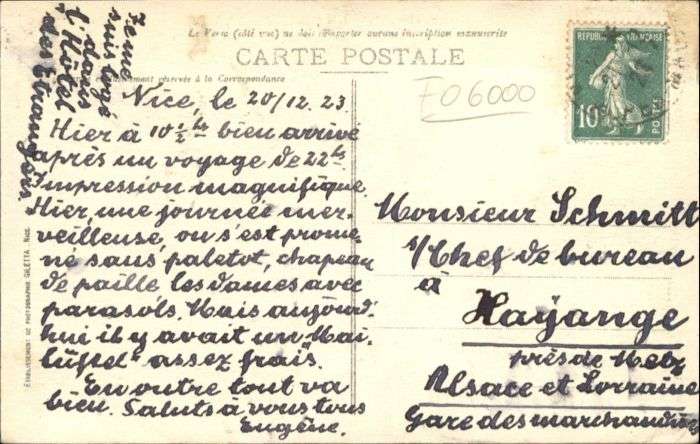 Le Verso (côté vue) ne doit comporter aucune inscription manuscrite
CARTE POSTALE
réservée à la Correspondance
Je me
suis logé
dans
l'Hôtel
des Etrangers.
Nice, le 20/12.23
Hier à 10 1/2 hs bien arrivé
après un voyage de 22hs
Impression magnifique
Hier, une journée mer-
veilleuse, on s'est prome-
né sans paletot, chapeau
de paille les dames avec
parasols. Mais aujourd'
hui il y avait un "Mai-
lüfterl" assez frais.
En outre tout va
bien. Saluts à vous tous
Eugène.
FO6000
REPUBLIQUE FRANÇAISE
10
POSTES
Monsieur Schmitt
s/Chef de bureau
à
Hayange
près de Metz
Alsace et Lorraine
Gare des marchandises
ÉTABLISSEMENT DE PHOTOGRAPHIE GILETTA, NICE.